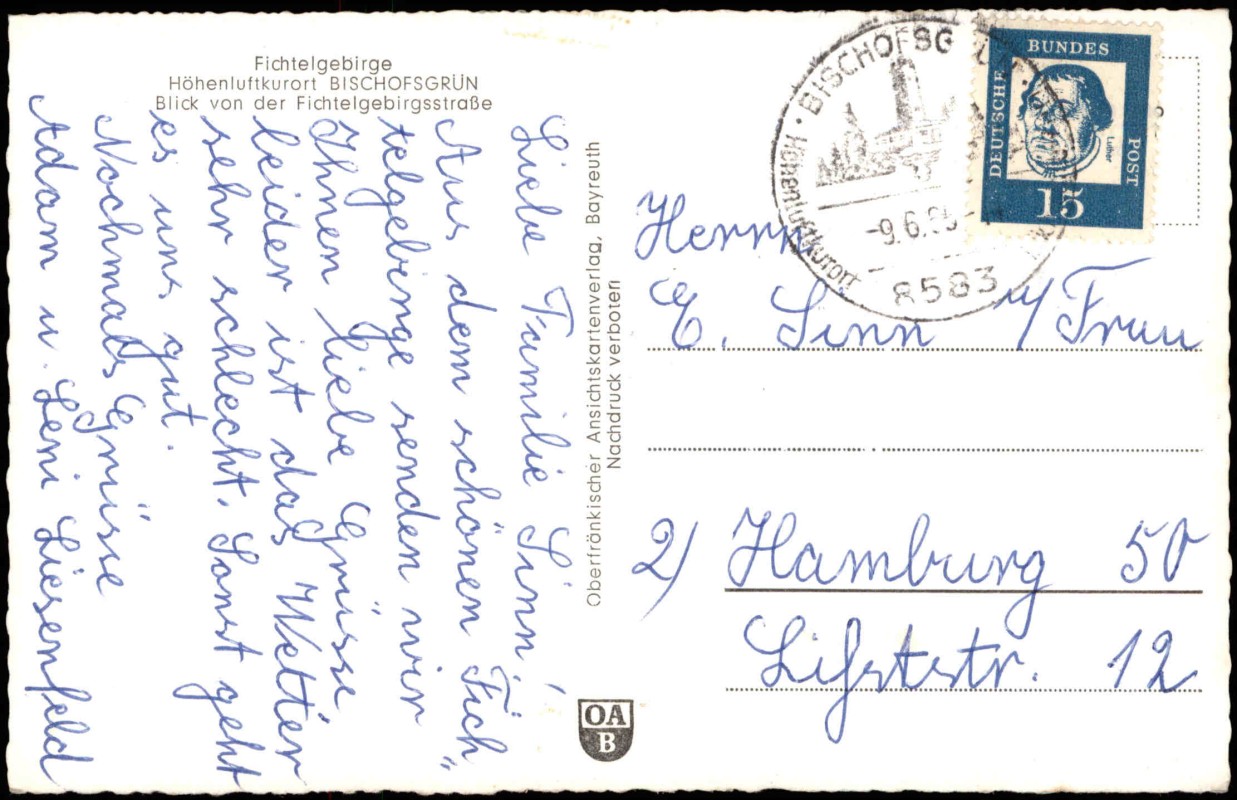 Fichtelgebirge
Höhenluftkurort BISCHOFSGRÜN
Blick von der Fichtelgebirgsstraße
Liebe Familie Sinn!
Aus dem schönen Fich„
telgebirge senden wir
Ihnen liebe Grüsse
leider ist das Wetter
sehr schlecht. Sonst geht
es uns gut.
Nochmals Grüsse
Adam u. Leni Liesenfeld
Oberfränkischer Ansichtskartenverlag, Bayreuth
Nachdruck verboten
OA
B
BISCHOFSG
Höhenluftkurort
-9.6.
8583
DEUTSCHE BUNDES POST
Luther
15
Herrn
E. Sinn u/Frau
2) Hamburg 50
12